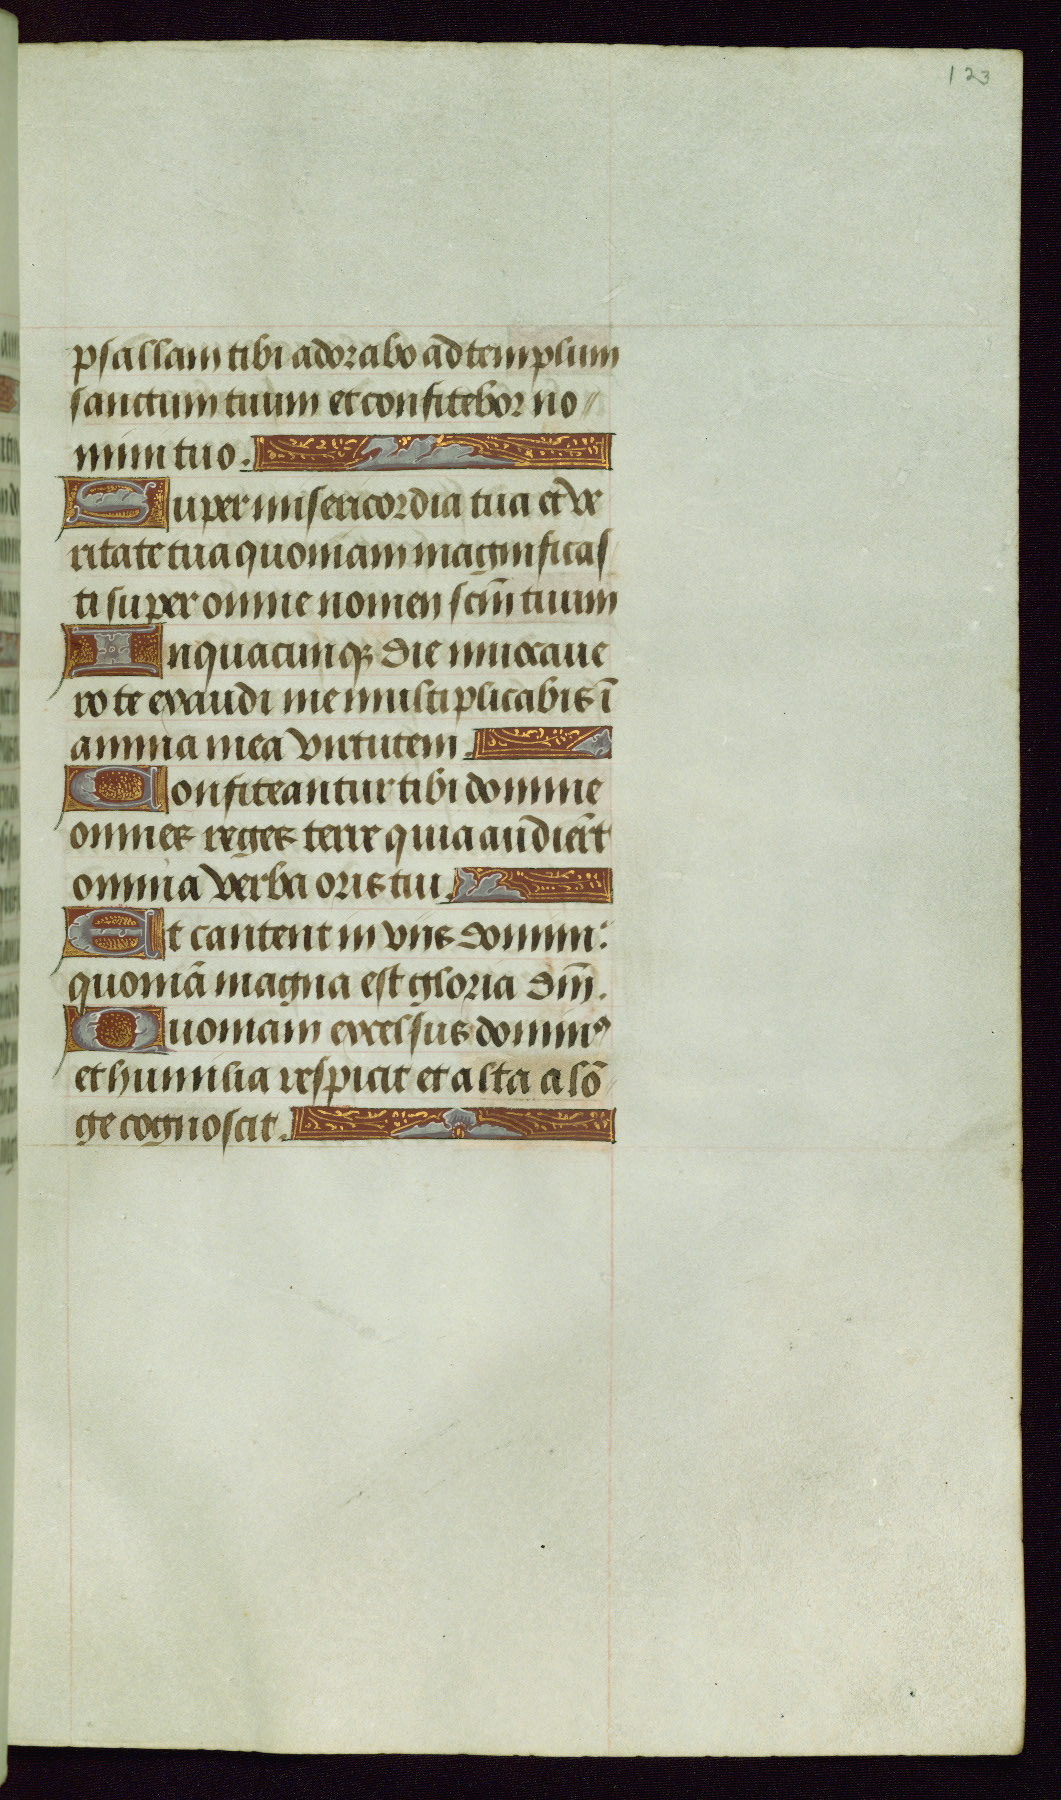 123
psallam tibi adorabo ad templum
sanctum tuum et confitebor no//
mini tuo.
Super misericordia tua et ve
ritate tua quoniam magnificas
ti super omne nomen scm̄ tuum
In quacunqꝫ die invocave
ro te exaudi me multiplicabis ī
anima mea virtutem.
Confiteantur tibi domine
omnes reges terre quia audier̄t
omnia verba oris tui.
Et cantent in viis domini:
quoniā magna est gloria dn̄i.
Quoniam excelsus dominꝰ
et humilia respicit et alta a lō//
ge cognoscit.